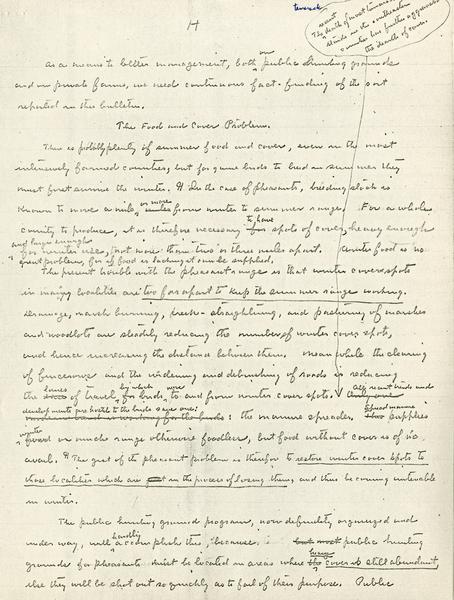 H
as a means to better management, both on public hunting grounds
and on private farms, we need continuous fact-finding of the sort
reported in this bulletin.
The Food and Cover Problem.
There is probably plenty of summer food and cover, even in the most
intensively farmed counties, but for game birds to breed in summer they
must first survive the winter. In the case of pheasants, breeding stock is
known to move a mile or more from winter to summer range. For a whole
county to produce, it is therefore necessary to have spots of cover, heavy enough
and large enough
for winter use, not more than two or three miles apart. Winter food is no
great problem, for if food is lacking it can be supplied.
The present trouble with the pheasant range is that winter cover spots
in many localities are too far apart to keep the summer range working.
Drainage, marsh burning, creek-straightening, and pasturing of marshes
and woodlots are steadily reducing the number of winter cover spots,
and hence increasing the distance between them. Meanwhile the clearing
of fencerows and the widening and debrushing of roads is reducing
the lanes of travel by which birds move to and from winter cover spots. All recent trends in land
develop units are hostile to the birds save one:
: the manure spreader. Spread manure supplies
winter food on much range otherwise foodless, but food without cover is of no
avail. The gist of the pheasant problem is therefore to restore winter cover spots to
those localities which are in the process of losing them, and thus becoming untenable
in winter.
The public hunting ground program, now definitely organized and
under way, will hardly accomplish this, because public hunting
grounds for pheasants must be located in areas where cover is still abundant,
else they will be shot out so quickly as to fail of their purpose. Public